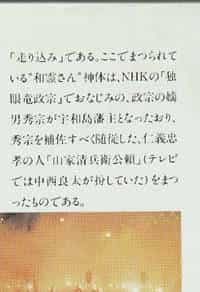 「走り込み」である。ここでまつられて
いる“和霊さん”神体は、NHKの「独
眼竜政宗」でおなじみの、政宗の嫡
男秀宗が宇和島藩主となったおり、
秀宗を補佐すべく随従した、仁義忠
孝の人「山家清兵衛公頼」(テレビ
では中西良太が扮していた)をまつ
ったものである。